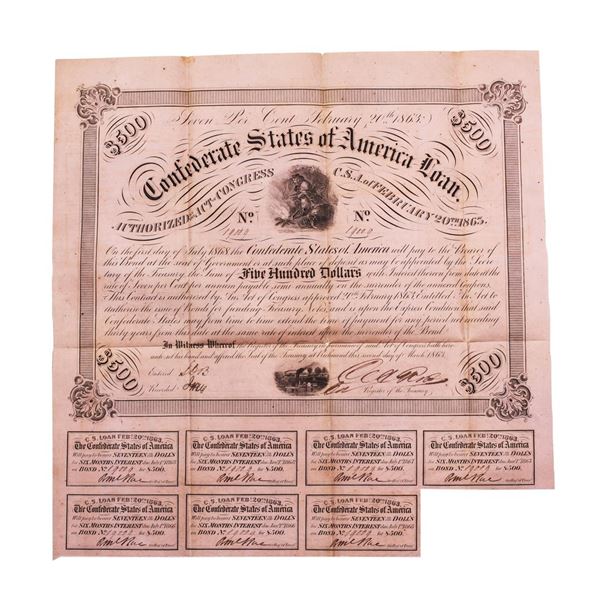 Seven Per Cent February 20th 1863
$500 $500
Confederate States of America Loan.
AUTHORIZED BY ACT OF CONGRESS C.S.A. OF FEBRUARY 20TH 1863.
No No
On the first day of July 1868 the Confederate States of America will pay to the Bearer of
this Bond at the seat of Government or at such place of deposit as may be appointed by the Secre
tary of the Treasury, the Sum of Five Hundred Dollars with Interest thereon from date at the
rate of Seven per Cent per annum payable semi annually on the surrender of the annexed Coupons.
This Contract is authorized by An Act of Congress approved 20th February 1863 Entitled An Act to
authorize the issue of Bonds for funding Treasury Notes and is upon the Express Condition that said
Confederate States may from time to time extend the time of payment for any period not exceeding
thirty years from this date at the same rate of interest after the surrender of the Bond
In Witness Whereof the Register of the Treasury and Act of Congress hath here
unto set his hand and affixed the Seal of the Treasury at Richmond this second day of March 1863.
$500 $500
Entered
Recorded
Register of the Treasury
C.S. LOAN FEB. 20TH 1863.
The Confederate States of America
Will pay to bearer SEVENTEEN DOLLS
for SIX MONTHS INTEREST due
on BOND No for $500.
C.S. LOAN FEB. 20TH 1863.
The Confederate States of America
Will pay to bearer SEVENTEEN DOLLS
for SIX MONTHS INTEREST due
on BOND No for $500.
C.S. LOAN FEB. 20TH 1863.
The Confederate States of America
Will pay to bearer SEVENTEEN DOLLS
for SIX MONTHS INTEREST due
on BOND No for $500.
C.S. LOAN FEB. 20TH 1863.
The Confederate States of America
Will pay to bearer SEVENTEEN DOLLS
for SIX MONTHS INTEREST due
on BOND No for $500.
C.S. LOAN FEB. 20TH 1863.
The Confederate States of America
Will pay to bearer SEVENTEEN DOLLS
for SIX MONTHS INTEREST due
on BOND No for $500.
C.S. LOAN FEB. 20TH 1863.
The Confederate States of America
Will pay to bearer SEVENTEEN DOLLS
for SIX MONTHS INTEREST due
on BOND No for $500.
C.S. LOAN FEB. 20TH 1863.
The Confederate States of America
Will pay to bearer SEVENTEEN DOLLS
for SIX MONTHS INTEREST due
on BOND No for $500.